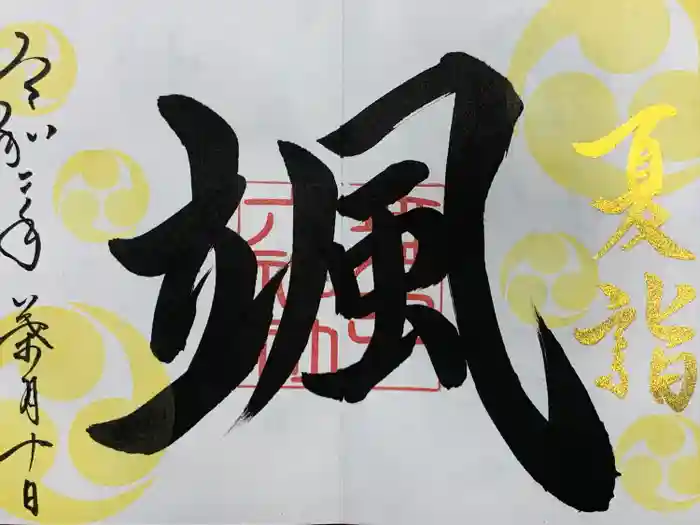 夏詣
颯
令和二年 葉月十日